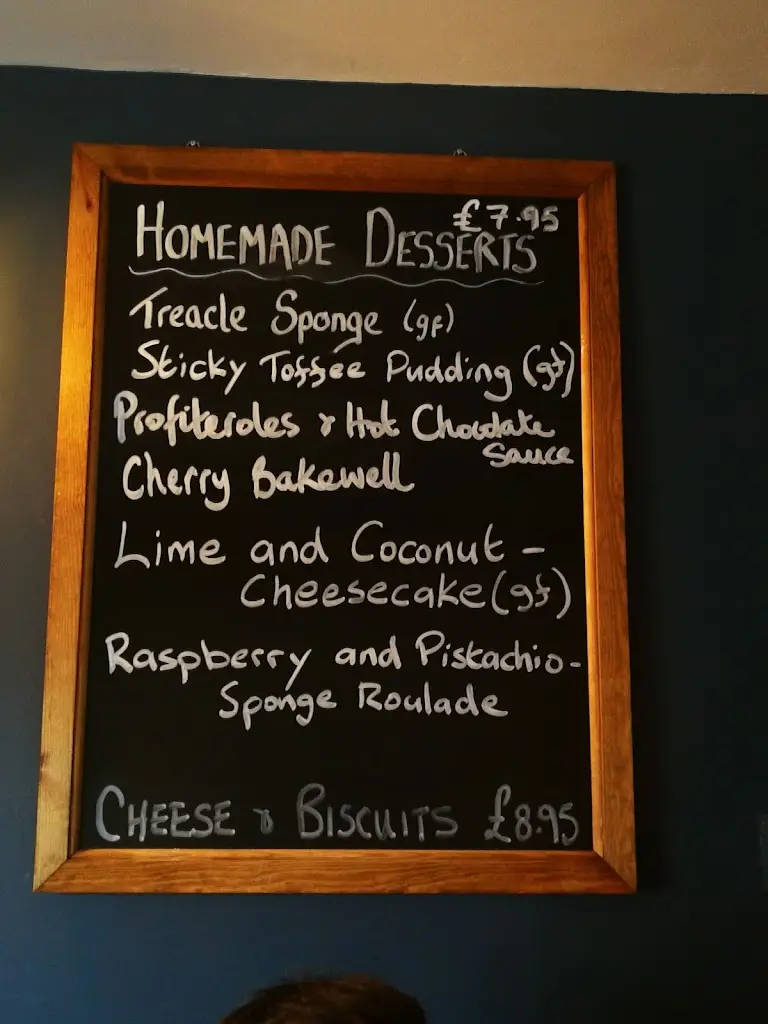 £7.95
HOMEMADE DESSERTS
Treacle Sponge (gf)
Sticky Toffee Pudding (gf)
Profiteroles & Hot Chocolate
Sauce
Cherry Bakewell
Lime and Coconut -
Cheesecake (gf)
Raspberry and Pistachio-
Sponge Roulade
CHEESE & BISCUITS £8.95